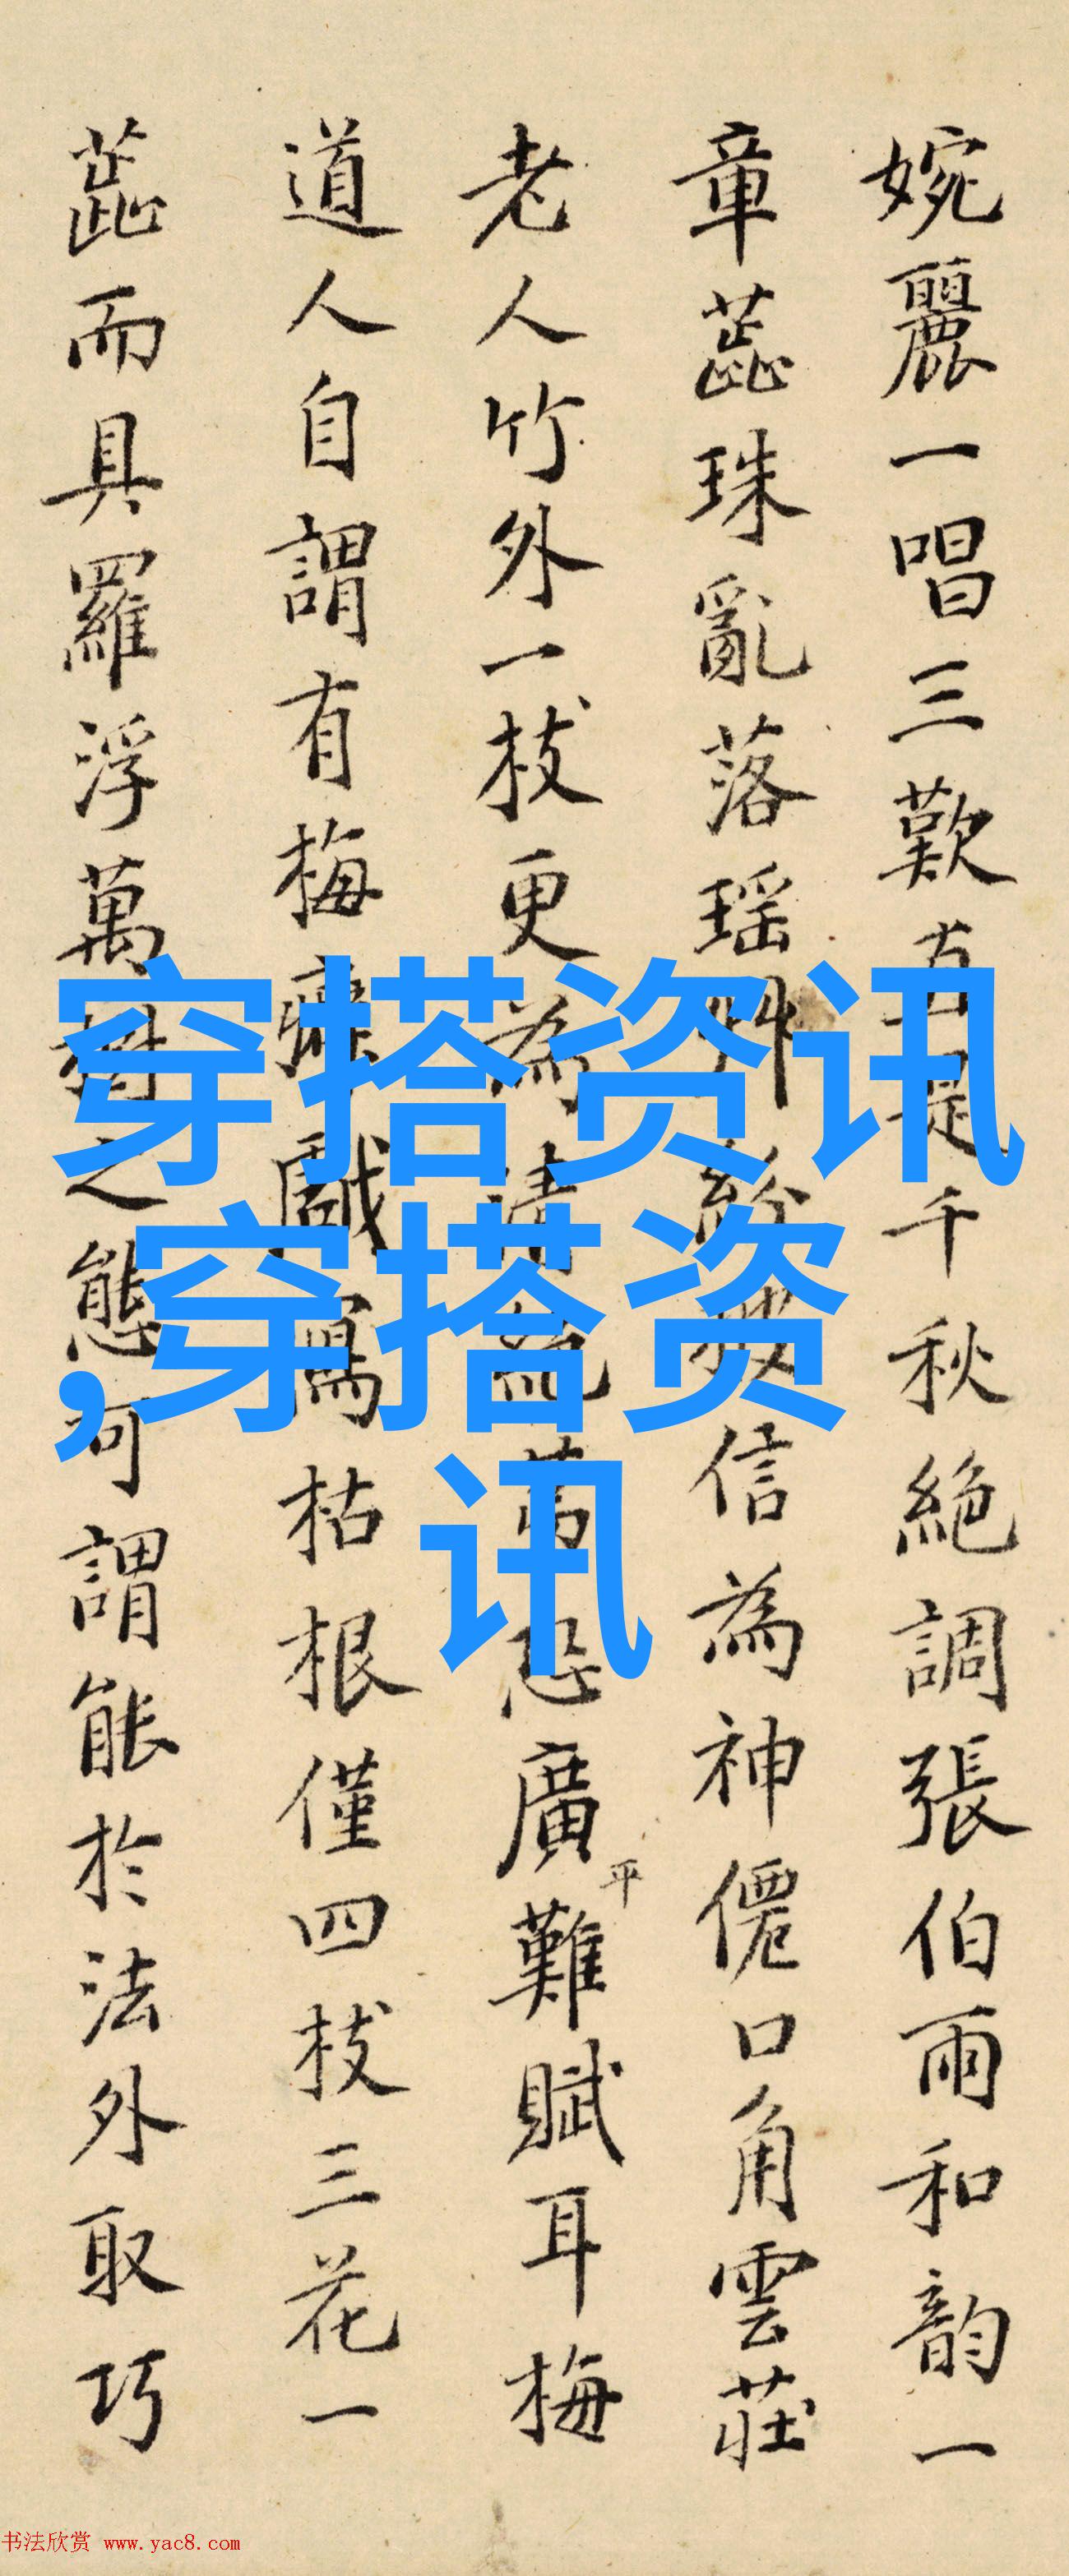 婉麗一唱三歎真是千秋絕調張伯雨和韻一
章蕋珠亂落瑶艸紛披信為神僊口角雲莊
老人竹外一枝更為清絕萬恐廣平難賦耳梅
道人自謂有梅癖戲寫枯根僅四枝三花一
蕋而具羅浮萬樹之態可謂能於法外取巧
穿搭资讯
,穿搭资
讯
书法欣赏 www.yac8.com